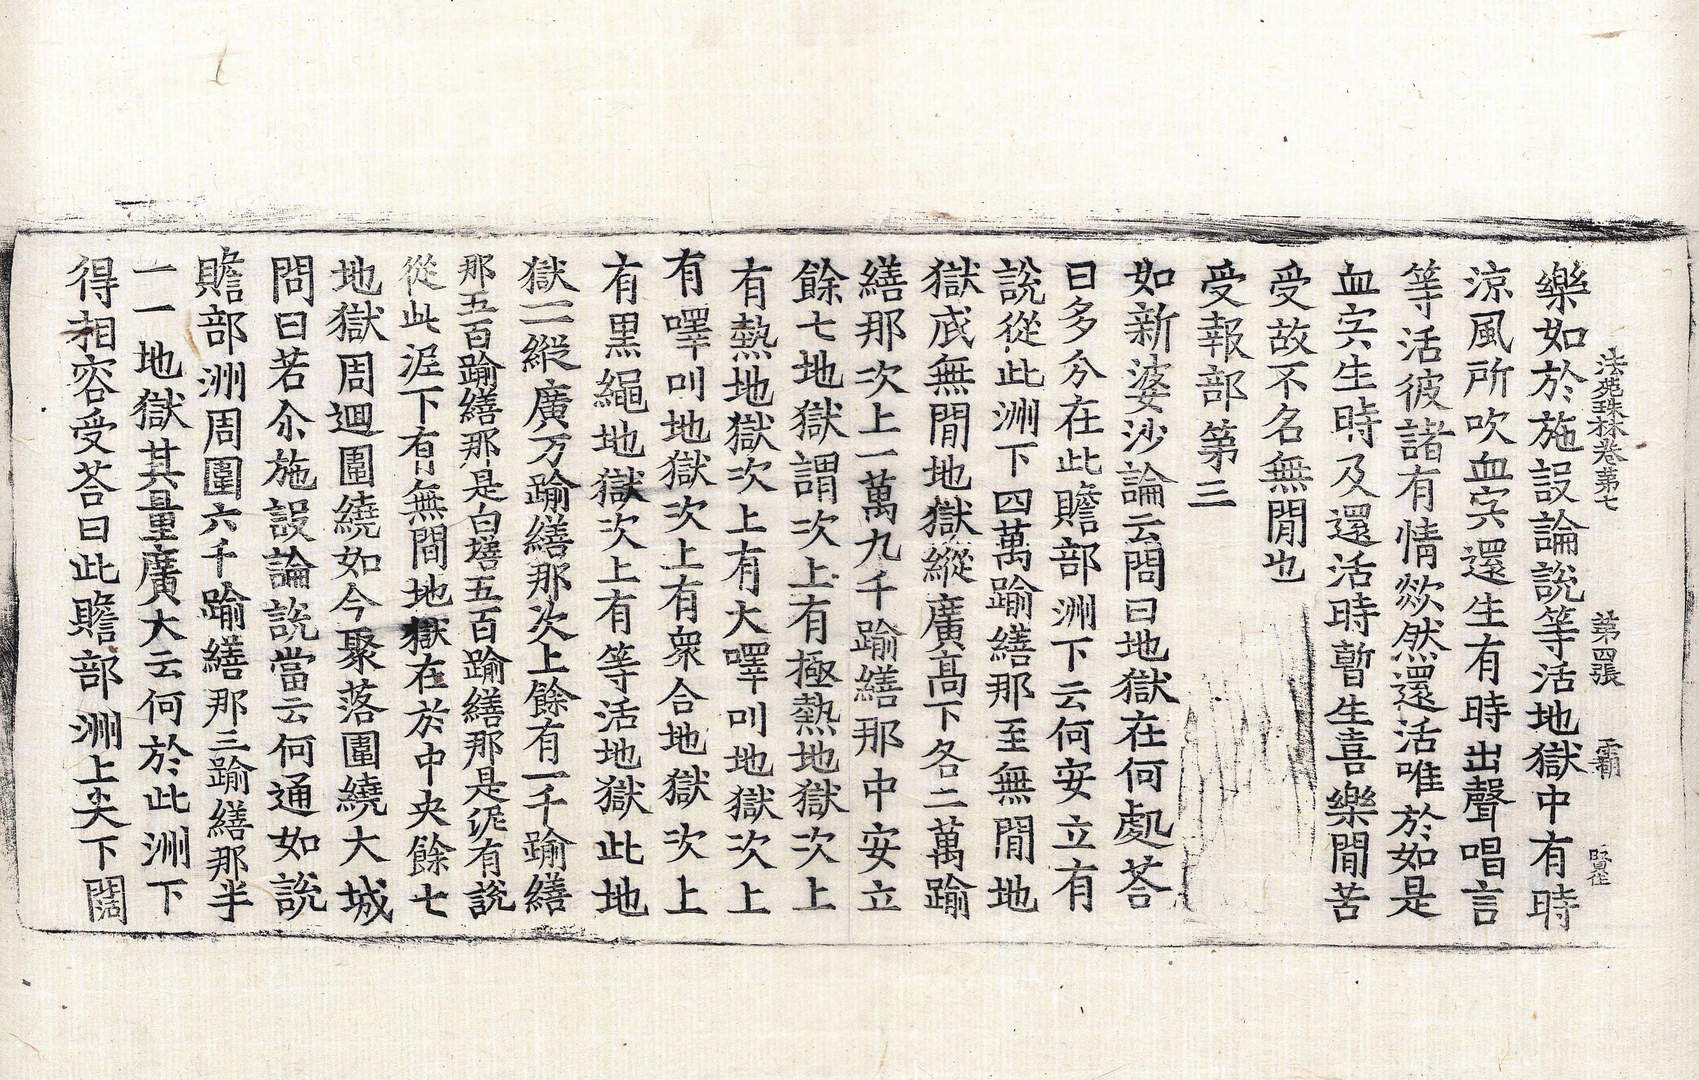 法苑珠林卷第七 第四張 霸
樂如於施設論說等活地獄中有時
涼風所吹血宍還生有時出聲唱言
等活彼諸有情欻然還活唯於如是
血宍生時及還活時暫生喜樂閒苦
受故不名無閒也
受報部第三
如新婆沙論云問曰地獄在何處荅
曰多分在此贍部洲下云何安立有
說從此洲下四萬踰繕那至無閒地
獄底無閒地獄縱廣高下各二萬踰
繕那次上一萬九千踰繕那中安立
餘七地獄謂次上有極熱地獄次上
有熱地獄次上有大嘷叫地獄次上
有嘷叫地獄次上有衆合地獄次上
有黑繩地獄次上有等活地獄此地
獄一一縱廣万踰繕那次上餘有一千踰繕
那五百踰繕那是白墡五百踰繕那是泥有說
從此泥下有無間地獄在於中央餘七
地獄周迴圍繞如今聚落圍繞大城
問曰若尒施設論說當云何通如說
贍部洲周圍六千踰繕那三踰繕那半
一一地獄其量廣大云何於此洲下
得相容受荅曰此贍部洲上尖下闊